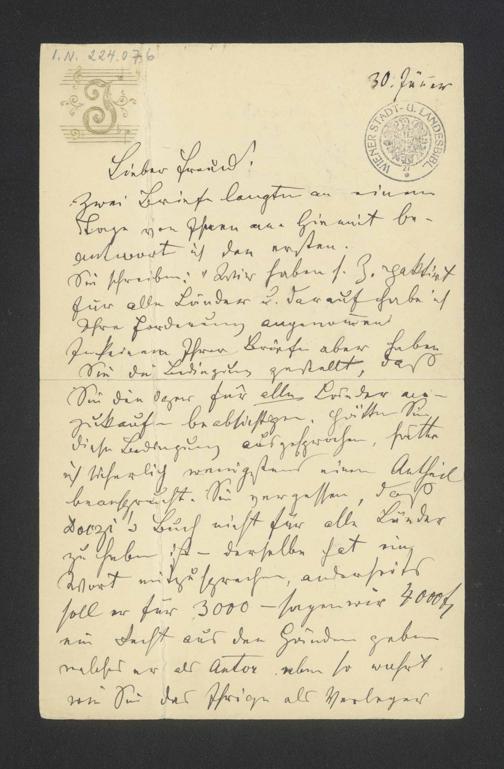 I.N. 224.076
J
30. Jänner
WIENER STADT- U. LANDESBIBL.
Lieber Freund!
Zwei Briefe langten an einem
Tage von Ihnen an. Hiemit be-
antwort ich den ersten.
Sie schreiben: "Wir haben s. Z.
für alle Länder u. darauf habe ich
Ihre Forderung angenommen
In keinem Ihrer Briefe aber haben
Sie die Bedingung gestellt, daß
Sie die Oper für alle Länder an-
zukaufen beabsichtigen. Hätten Sie
diese Bedingung ausgesprochen, hätte
ich sicherlich wenigstens einen Antheil
beansprucht. Sie vergessen, daß
Doczi's Buch nicht für alle Länder
zu haben ist – derselbe hat ein
Wort mitzusprechen, anderseits
soll er für 3000 – sagen wir 4000 f
ein Recht aus den Händen geben
welches er als Autor eben so wahrt
wie Sie das Ihrige als Verleger